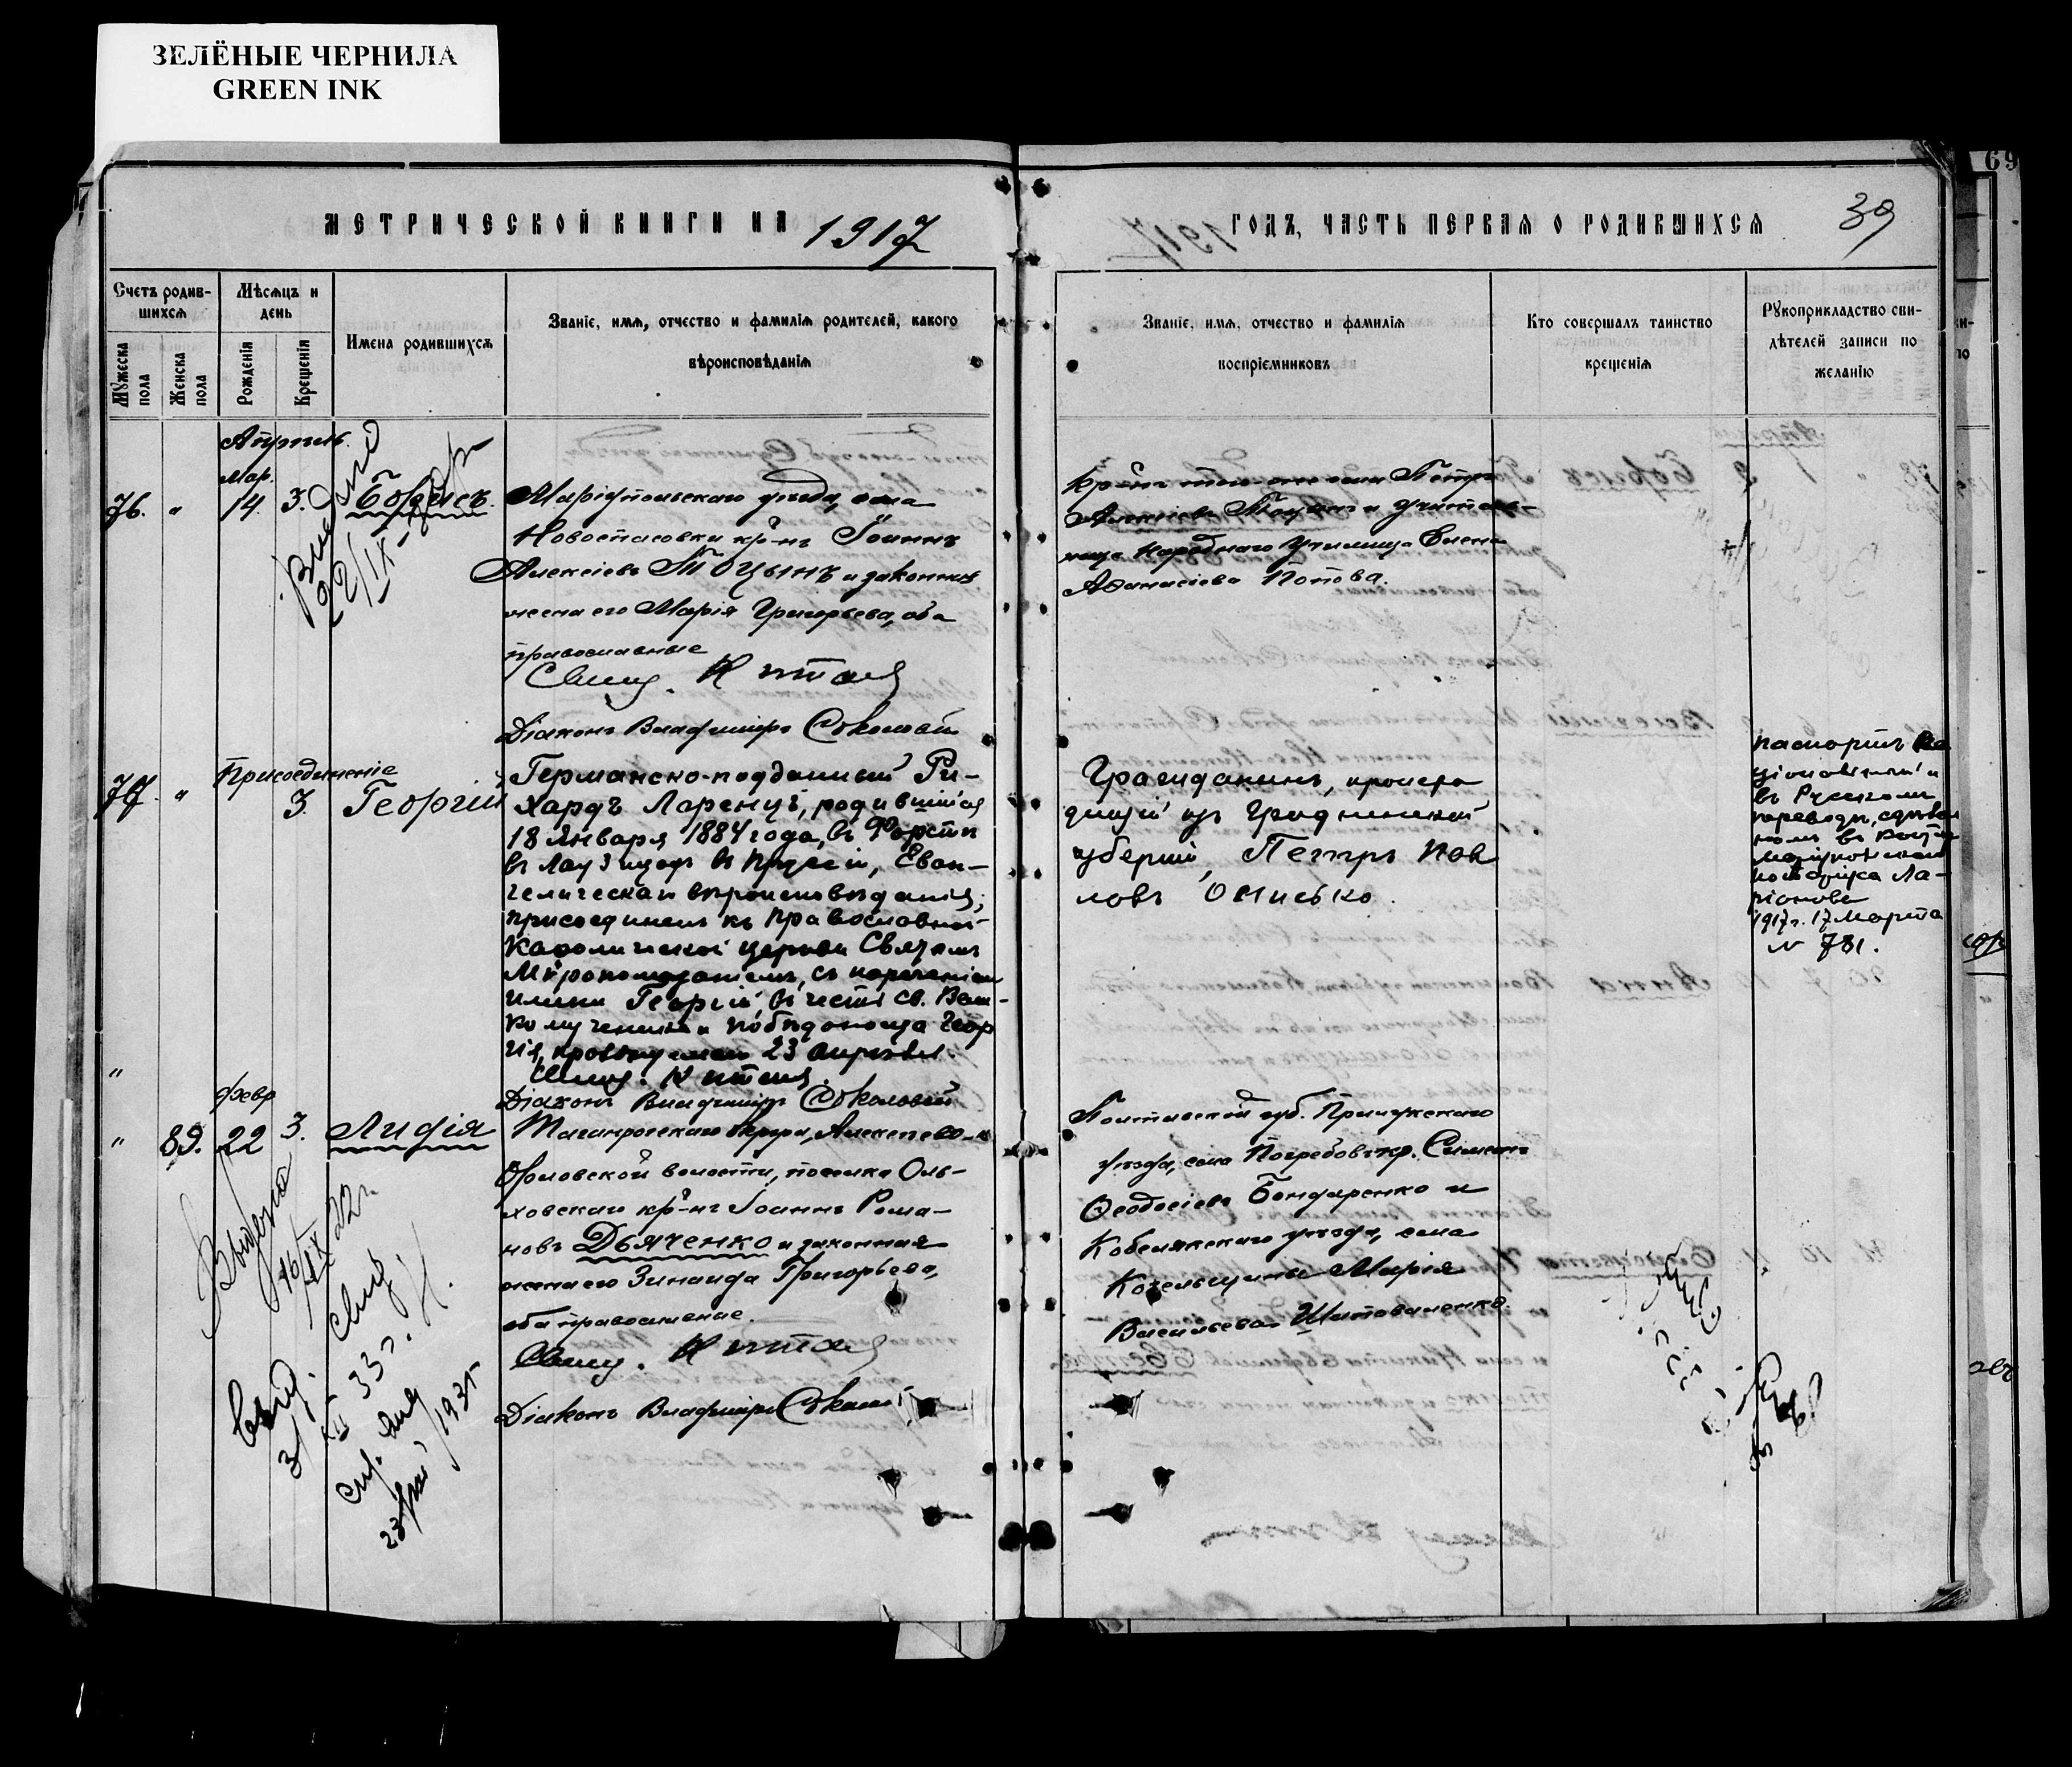 ЗЕЛЁНЫЕ ЧЕРНИЛА
GREEN INK
69
МЕТРИЧЕСКОЙ КНИГИ НА 1917
ГОДЪ, ЧАСТЬ ПЕРВАЯ О РОДИВШИХСЯ
39
Счетъ родив-
шихся
Мужеска
пола
Женска
пола
Мѣсяцъ и
день
Рожденія
Крещенія
Имена родившихся
Званіе, имя, отчество и фамилія родителей, какого
вѣроисповѣданія
Званіе, имя, отчество и фамилія
воспріемниковъ
Кто совершалъ таинство
крещенія
Рукоприкладство сви-
дѣтелей записи по
желанію
Апрель
Мар.
76. " 14. 3. Борисъ.
22/IX
Маріупольскаго уѣзда, села
Новоспасовки кр-нъ Іоаннъ
Алексіевъ Тоцынъ и законная
жена его Марія Григорьева, оба
православные
Свящ.
Діаконъ Владиміръ Соколовъ
кр-нъ того-же села Петръ
Алексіевъ Тоцынъ и учитель-
ница народнаго училища Елена
Аѳанасіева Попова.
Присоединеніе
77. " 3. Георгій
Германско-подданный Ри-
хардъ Ларенцъ, родившійся
18 Января 1884 года, въ Форстѣ
въ Лаузицѣ въ Пруссіи, Еван-
гелическаго вѣроисповѣданія,
присоединенъ къ Православной
Каѳолической церкви Святымъ
Мѵропомазаніемъ, съ нареченіемъ
имени Георгій въ честь св. Вели-
комученика и побѣдоносца Геор
гія, празднуемаго 23 Апрѣля.
Свящ.
Діаконъ Владиміръ Соколовъ
Гражданинъ, происхо
дящій изъ Гродненской
губерніи, Петръ Пав
ловъ Осисько.
паспортъ
въ Русскомъ
переводѣ, сдѣлан
номъ въ
нотаріуса Ла-
ріонова
1917 г. 17 Марта
№ 781.
"
Февр
" 89. 22 3. Лидія
Выдена
16/IX 22 г.
Свид.
3/XII 33 г.
23/ 1931
Таганрогскаго округа, Алексеево-
Орловской волости, поселка Оль-
ховскаго кр-нъ Іоаннъ Рома-
новъ Дьяченко и законная
жена его Зинаида Григорьева,
оба православные.
Свящ.
Діаконъ Владиміръ Соколовъ
Полтавской губ. Прилукскаго
уѣзда, села Погребовъ кр. Симеонъ
Ѳеодосіевъ Бондаренко и
Кобелякскаго уѣзда, села
Козельщины Марія
Васильева Шаповаленко.